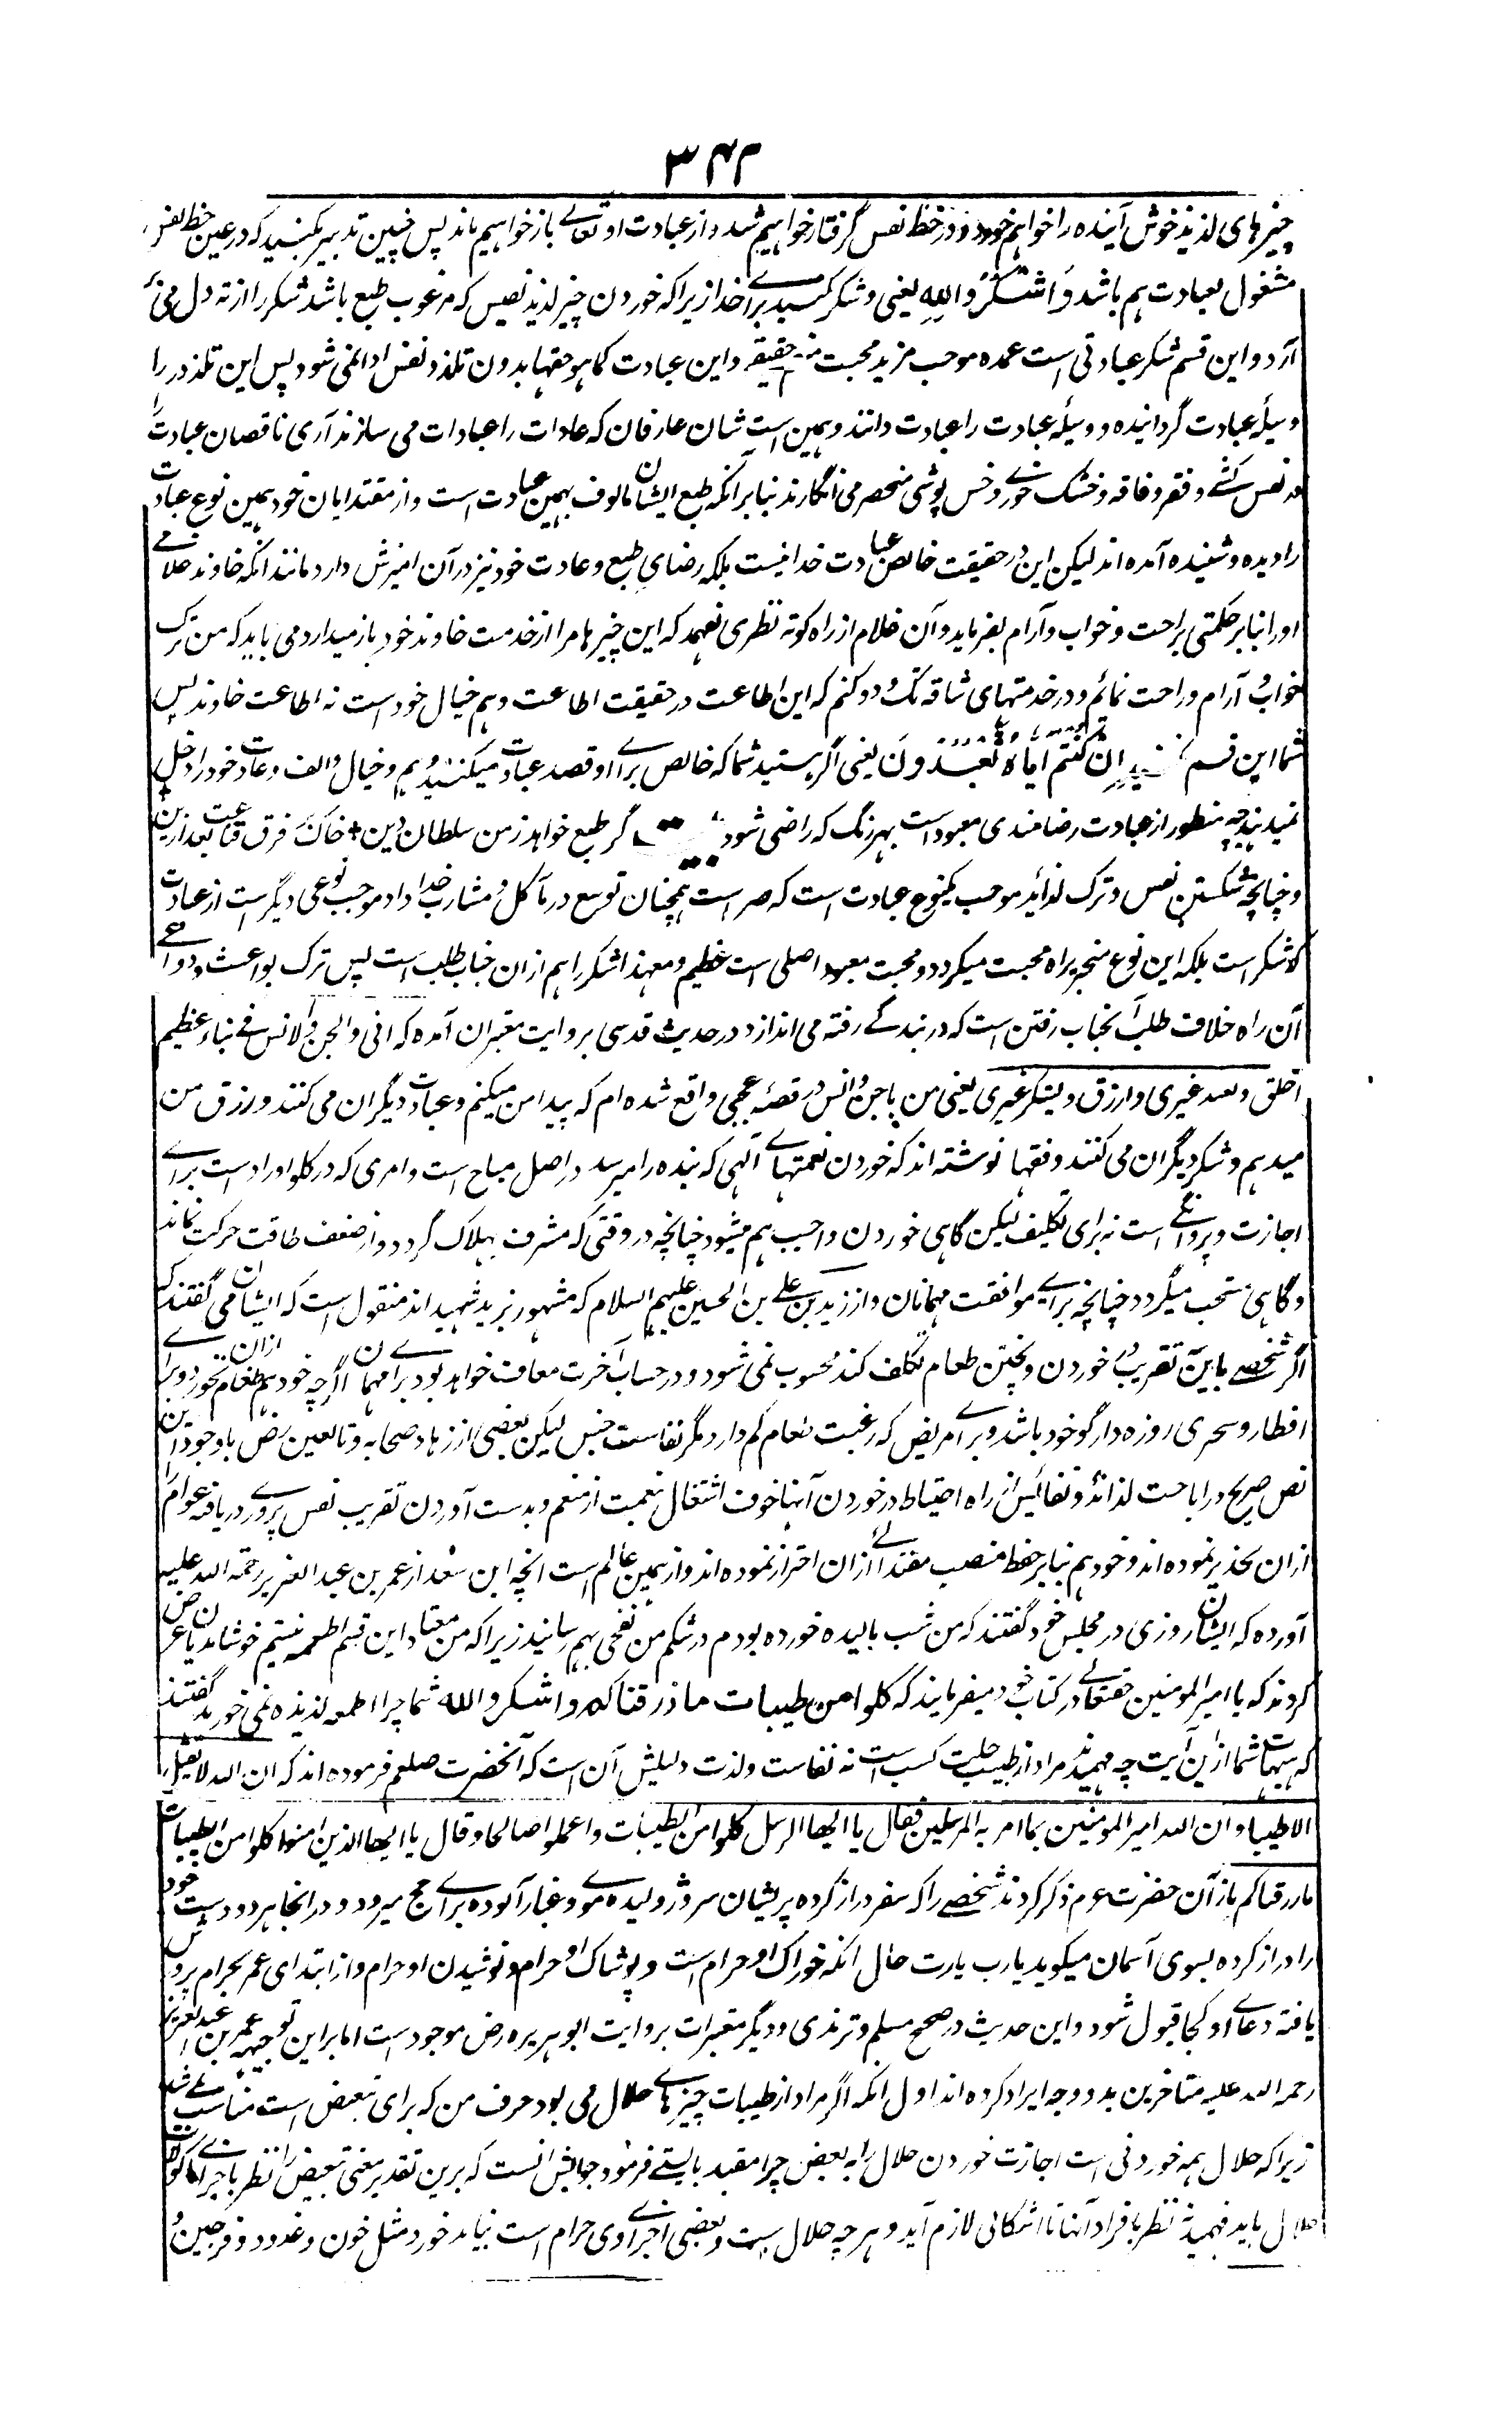 ۳۴۲
چیزهای لذیذ خوش آینده را خواهم خورد و در حظ نفس گرفتار خواهیم شد و از عبادت او تعالے باز خواهیم ماند پس چنین تدبیر بکنید که در عین حظ نفس
مشغول بعبادت هم باشد وَاشْكُرُوا لِلّٰهِ یعنی و شکر کنید براے خدا زیرا که خوردن چیز لذیذ نفیس که مرغوب طبع باشد شکر را از ته دل می
آرد و این قسم شکر عبادتی است عمده موجب مزید محبت منعم حقیقی و این عبادت کما هو حقها بدون تلذذ نفس ادا نمی شود پس این تلذذ را
وسیلهٔ عبادت گردانیده و وسیلهٔ عبادت را عبادت دانند و همین است شان عارفان که عادات را عبادات می سازند آری ناقصان عبادت را
در نفس کشے و فقر و فاقه و خشک خورے و خس پوشی منحصر می انگارند بنا بر آنکه طبع ایشان مالوف بهمین عبادت است و از مقتدایان خود همین نوع عبادت
را دیده و شنیده آمده اند لیکن این در حقیقت خالص عبادت خدا نیست بلکه رضای طبع و عادت خود نیز در آن امیزش دارد مانند آنکه خاوند غلامے
او را بنا بر حکمتی براحت و خواب و آرام بفرماید و آن غلام از راه کوته نظری نفهمد که این چیزها مرا از خدمت خاوند خود باز میدارد می باید که من ترک
خواب و آرام و راحت نمائم و در خدمتهای شاقه تگ و دو کنم که این اطاعت در حقیقت اطاعت وهم خیال خود است نه اطاعت خاوند پس
شما این قسم اِنْ كُنْتُمْ اِيَّاهُ تَعْبُدُوْنَ یعنی اگر هستید شما که خالص براے او قصد عبادت میکنید و وهم و خیال و الف و عادت خود را دخل
نمیدهید چه منظور از عبادت رضامندی معبود است بهر رنگ که راضی شود بیت گر طمع خواهد ز من سلطان دین + خاک بر فرق قناعت بعد ازین +
و چنانچه شکستن نفس و ترک لذائذ موجب یکنوع عبادت است که صبر است همچنان توسع در مآکل و مشارب خدا داد موجب نوعی دیگر است از عبادت
که شکر است بلکه این نوع منجر براه محبت میگردد و محبت معبود اصلی است عظیم و معهذا شکر را هم از ان جناب طلب است پس ترک بواعث و دواعے
آن راه خلاف طلب آنجناب رفتن است که در بندگے رفته می اندازد در حدیث قدسی بروایت معتبران آمده که انی والجن والانس فے نباء عظیم
اخلق و یعبد غیری و ارزق و یشکر غیری یعنی من با جن و انس در قصهٔ عجبی واقع شده ام که پیدا من میکنم و عبادت دیگران می کنند و رزق من
میدهم و شکر دیگران می کنند و فقها نوشته اند که خوردن نعمتهاے الهی که بنده را میرسد در اصل مباح است و امری که در کلوا وارد است براے
اجازت و پروانگے است نه برای تکلیف لیکن گاهی خوردن واجب هم میشود چنانچه در وقتی که مشرف بهلاک گردد و از ضعف طاقت حرکت نماند
و گاهی مستحب میگردد چنانچه براے موافقت مهمانان و از زید بن علی بن الحسین علیهم السلام که مشهور بزید شهید اند منقول است که ایشان می گفتند که
اگر شخصے باین تقریب خوردن و پختن طعام تکلف کند محسوب نمی شود و در حساب آخرت معاف خواهد بود براے مهمان اگرچه خود هم ازان طعام بخورد و براے
افطار و سحری روزه دار گو خود باشد و براے مریض که رغبت طعام کم دارد مگر نفاست جنس لیکن بعضی از زهاد صحابه و تابعین رض با وجود این
نص صریح در اباحت لذائذ و نفائس از راه احتیاط در خوردن آنها خوف اشتغال بنعمت از منعم و بدست آوردن تقریب نفس پرورے دریافته عوام را
از ان تحذیر نموده اند و خود هم بنا بر حفظ منصب مقتدائے از ان احتراز نموده اند و از همین عالم است انچه ابن سعد از عمر بن عبد العزیز رحمة الله علیه
آورده که ایشان روزی در مجلس خود گفتند که من شب بالیده خورده بودم در شکم من نفخی بهم رسانید زیرا که من معتاد این قسم اطعمه نیستم خوشامدیان عرض
کردند که یا امیر المومنین حقتعالے در کتاب خود میفرمایند که كلوا من طيبات ما رزقناكم واشكروا لله شما چرا اطعمه لذیذه نمی خورید گفتند
که هیهات شما ازین آیت چه فهمیدید مراد از طیب حلیت کسب است نه نفاست و لذت دلیلش آن است که آنحضرت صلعم فرموده اند که ان الله لا یقبل
الا طیبا و ان الله امر المومنین بما امر به المرسلین فقال یا ایها الرسل کلوا من الطیبات واعملوا صالحا و قال یا ایها الذین امنوا کلوا من طیبات
ما رزقناکم باز آن حضرت صلعم ذکر کردند شخصے را که سفر دراز کرده پریشان سر و ژولیده موے و غبار آلوده براے حج میرود و در انجا هر دو دست خود
را دراز کرده بسوی آسمان میگوید یارب یارب حال آنکه خوراک او حرام است و پوشاک او حرام و نوشیدن او حرام و از ابتدای عمر بحرام پرورش
یافته دعاے او کجا قبول شود و این حدیث در صحیح مسلم و ترمذی و دیگر معتبرات بروایت ابو هریره رض موجود است اما برین توجیه عمر بن عبد العزیز
رحمه الله علیه متاخرین بدو وجه ایراد کرده اند اول آنکه اگر مراد از طیبات چیزهاے حلال می بود حرف من که برای تبعیض است مناسب نمے شد
زیرا که حلال همه خوردنی است اجازت خوردن حلال را به بعض چرا مقید بایستے فرمود جوابش آنست که برین تقدیر معنی تبعیض را نظر باجزاے ماکولات
حلال باید فهمید نه نظر بافراد آنها تا اشکالی لازم آید و هر چه حلال است و بعضی اجزاے وی حرام است نباید خورد مثل خون و غدود و فرجین و